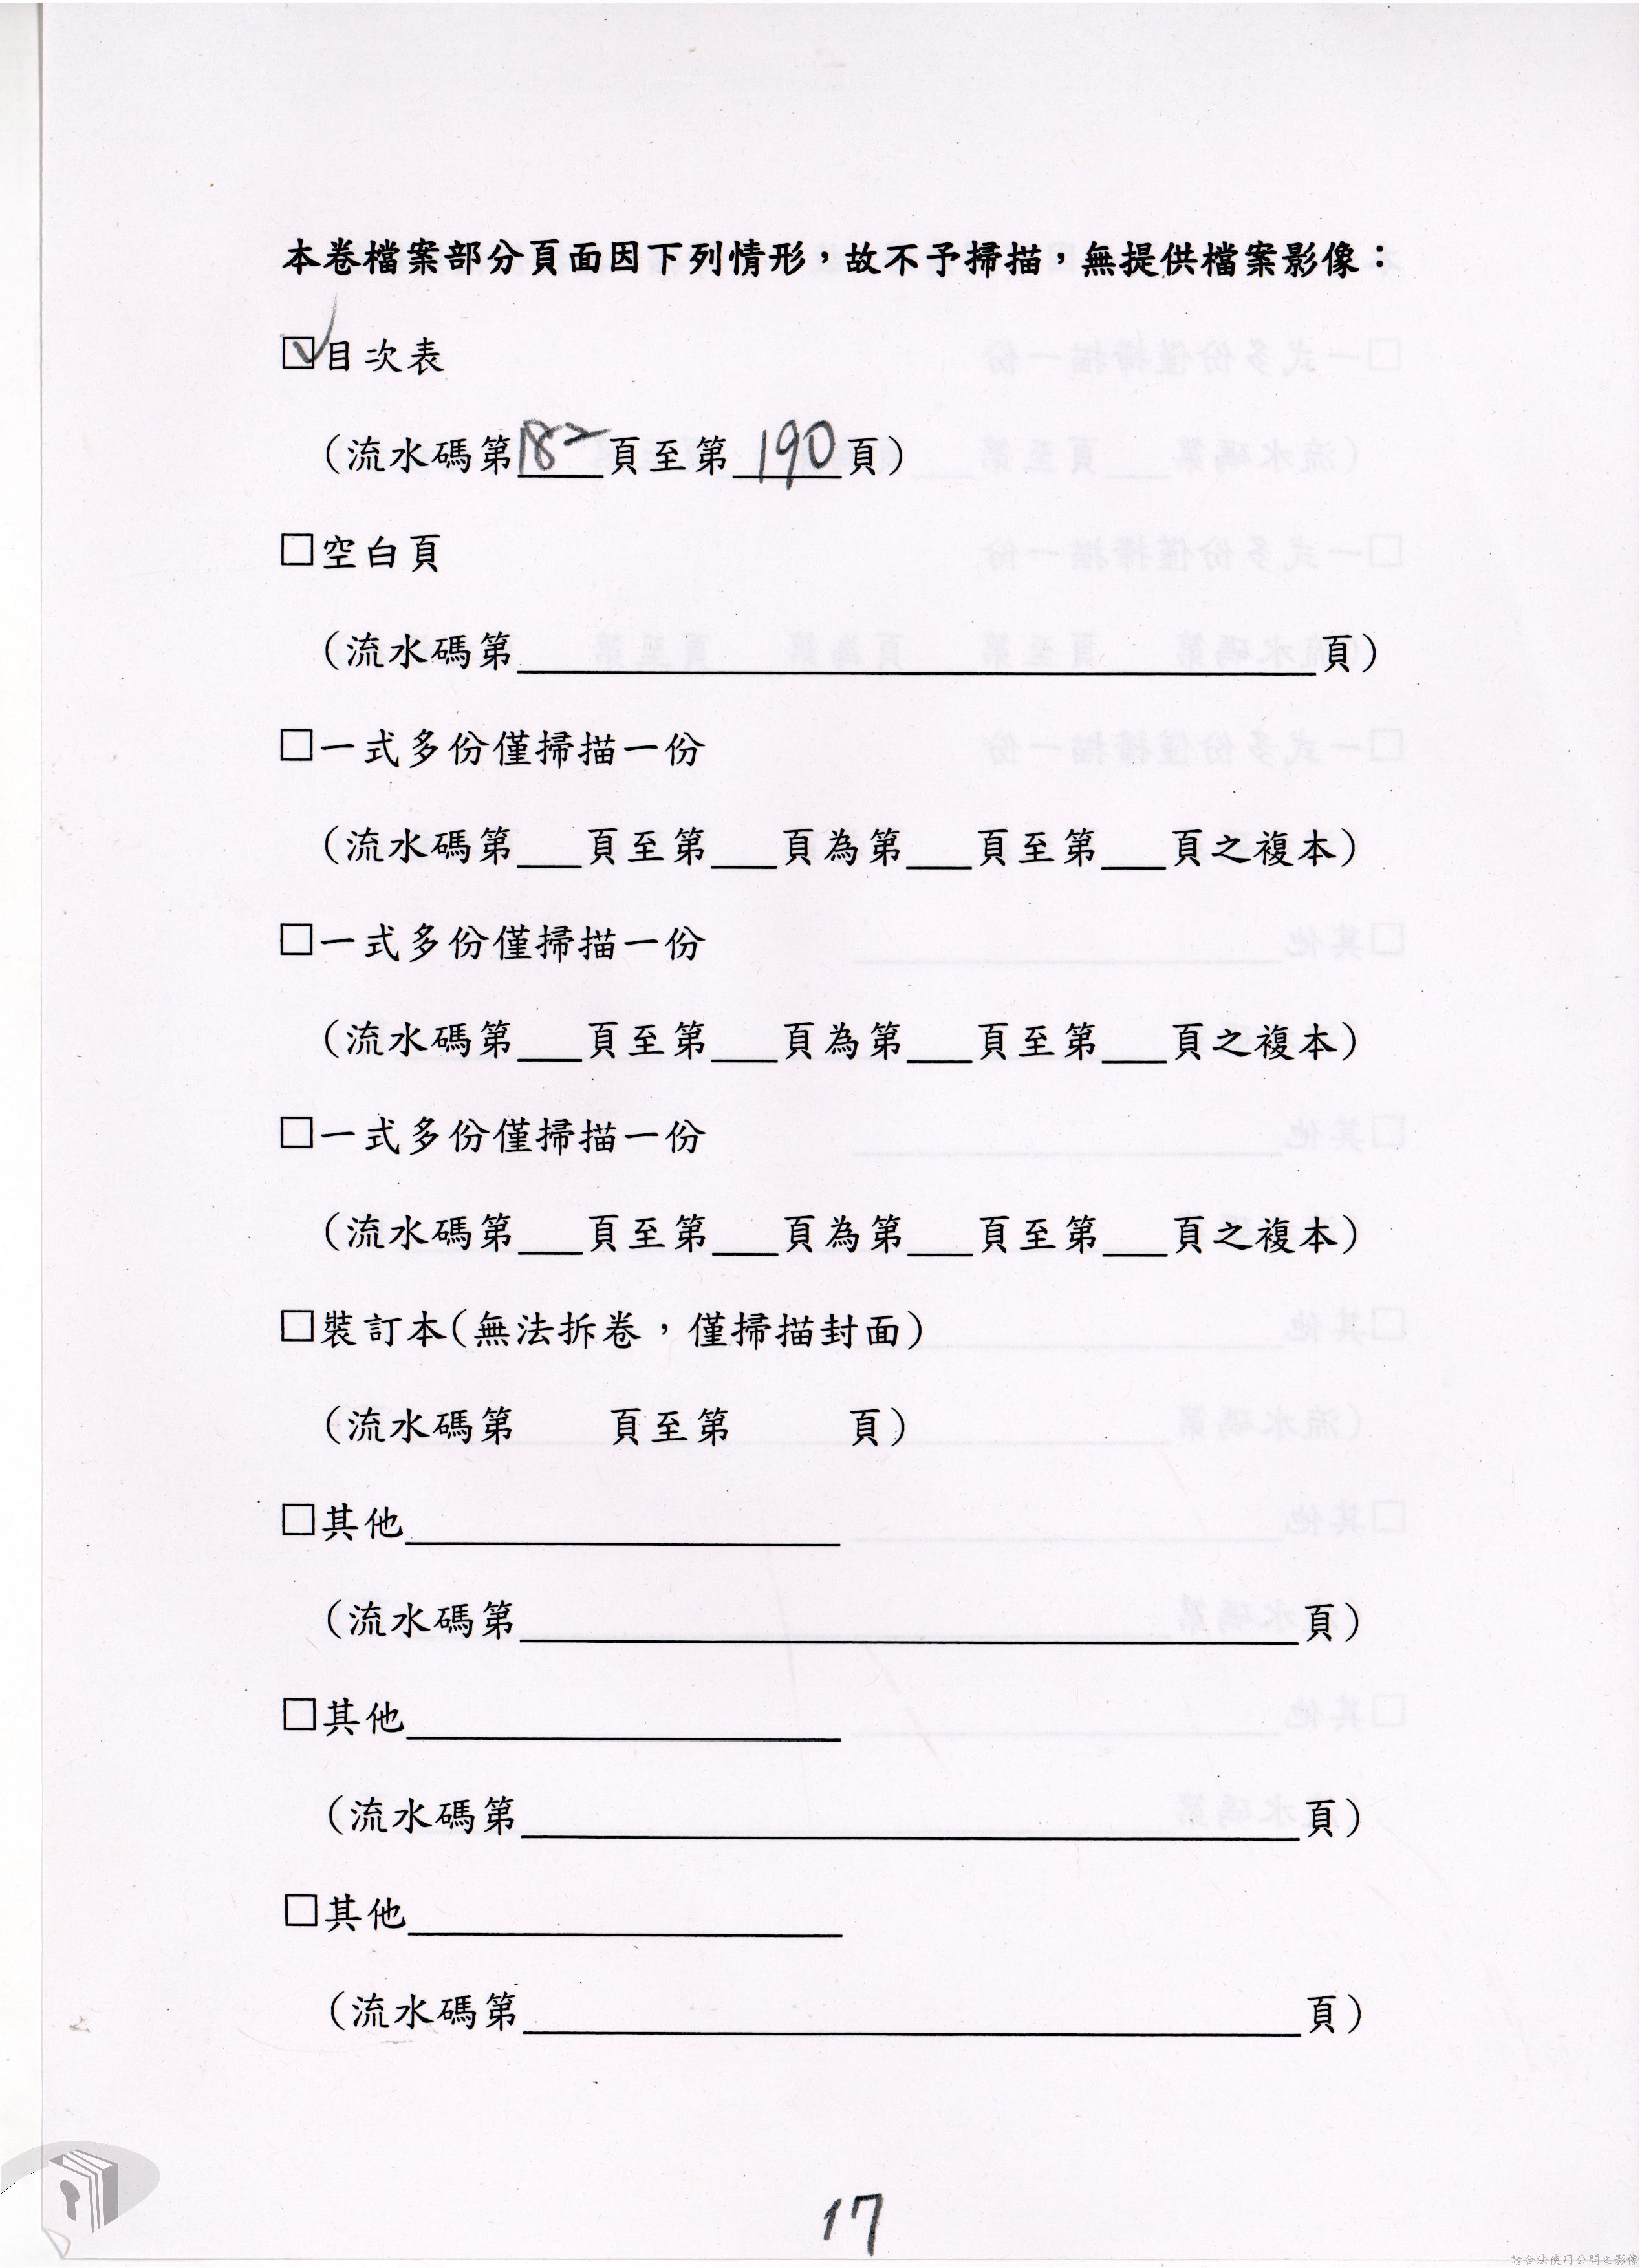 本卷檔案部分頁面因下列情形，故不予掃描，無提供檔案影像：
☑目次表
（流水碼第182頁至第190頁）
□空白頁
（流水碼第____頁）
□一式多份僅掃描一份
（流水碼第___頁至第___頁為第___頁至第___頁之複本）
□一式多份僅掃描一份
（流水碼第___頁至第___頁為第___頁至第___頁之複本）
□一式多份僅掃描一份
（流水碼第___頁至第___頁為第___頁至第___頁之複本）
□裝訂本（無法拆卷，僅掃描封面）
（流水碼第　　頁至第　　頁）
□其他____
（流水碼第____頁）
□其他____
（流水碼第____頁）
□其他____
（流水碼第____頁）
17
請合法使用公開之影像